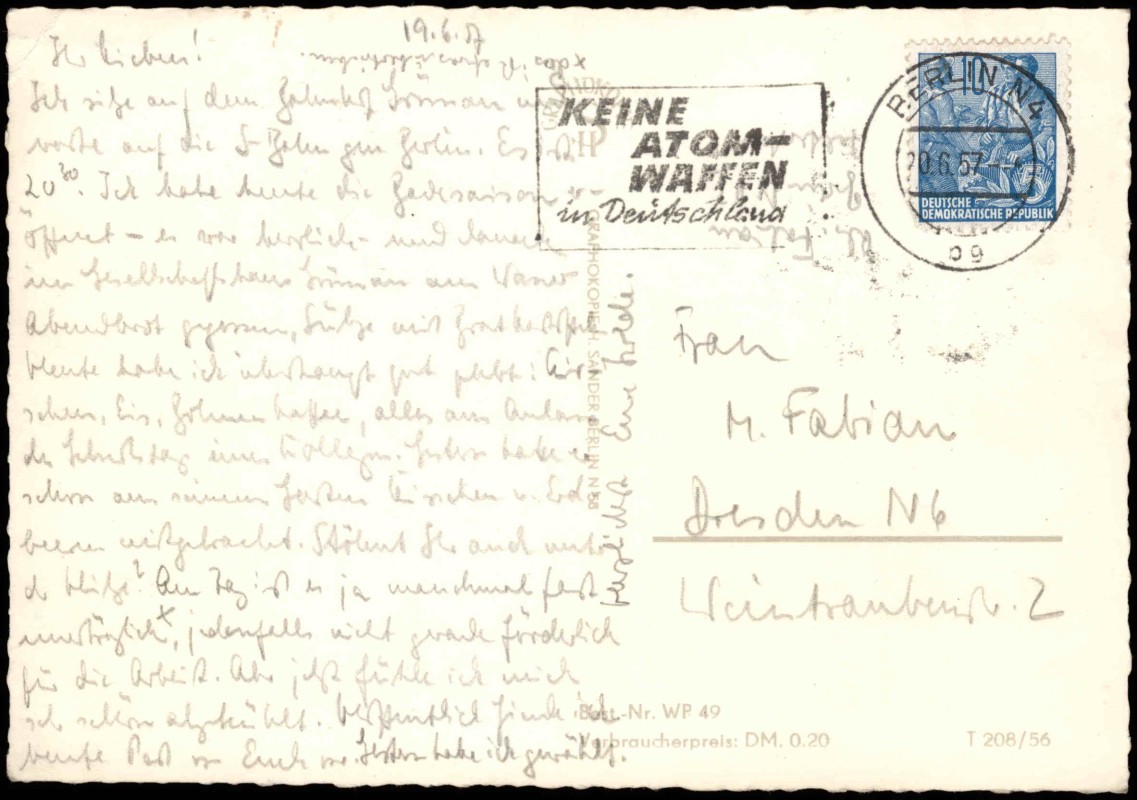 19.6.57
Ihr Lieben!
x das ist etwas übertrieben.
Ich sitze auf dem Bahnhof Grünau und
warte auf die S-Bahn gen Berlin. Es ist
20³⁰. Ich habe heute die Badesaison er-
öffnet – es war herrlich – und danach
im Gesellschaftshaus Grünau am Wasser
Abendbrot gegessen, Sülze mit Bratkartoffeln
Heute habe ich überhaupt gut gelebt: Kir-
schen, Eis, Bohnenkaffee, alles am Anlass
des Geburtstag eines Kollegen. Gestern hatte er
schon aus seinem Garten Kirschen u. Erd-
beeren mitgebracht. Stöhnt Ihr auch unter
d. Hitze? Am Tag ist es ja manchmal fast
unerträglich x, jedenfalls nicht gerade förderlich
für die Arbeit. Aber jetzt fühle ich mich
sehr schön abgekühlt. Hoffentlich finde ich
heute Post von Euch vor. Gestern habe ich gewählt.
Herzlichst Eure
KEINE
ATOM-
WAFFEN
in Deutschland
BERLIN N4
20.6.57
bg
10
DEUTSCHE
DEMOKRATISCHE REPUBLIK
GRAPHOKOPIE H. SANDER BERLIN N 58
Frau
M. Fabian
Dresden N6
Weintraubenstr. 2
Best.-Nr. WP 49
Verbraucherpreis: DM. 0.20
T 208/56